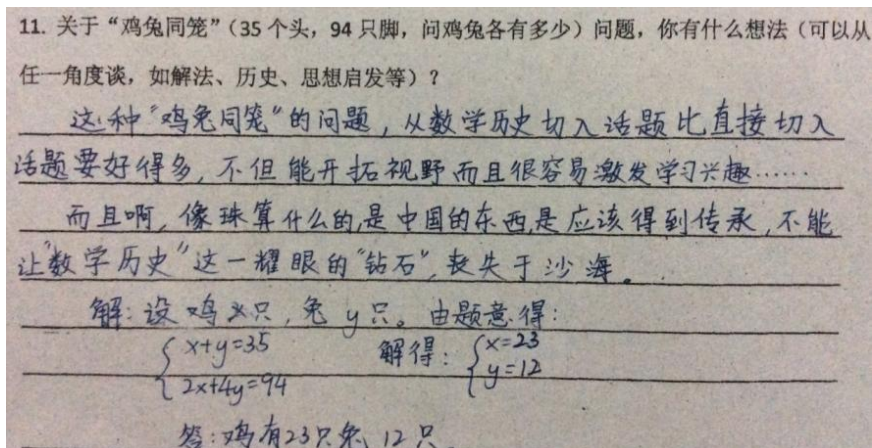 11. 关于“鸡兔同笼”（35 个头，94 只脚，问鸡兔各有多少）问题，你有什么想法（可以从
任一角度谈，如解法、历史、思想启发等）？
这种“鸡兔同笼”的问题，从数学历史切入话题比直接切入
话题要好得多，不但能开拓视野而且很容易激发学习兴趣……
而且啊，像珠算什么的，是中国的东西，是应该得到传承，不能
让“数学历史”这一耀眼的“钻石”，丧失于沙海。
解：设鸡x只，兔y只。由题意得：
x+y=35 解得：x=23
2x+4y=94 y=12
答：鸡有23只兔12只